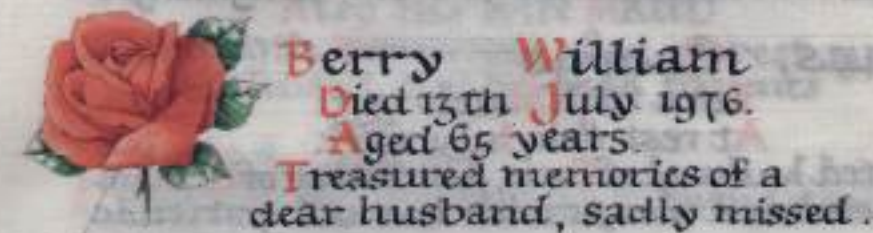 Berry William
Died 13th July 1976.
Aged 65 years.
Treasured memories of a
dear husband, sadly missed.